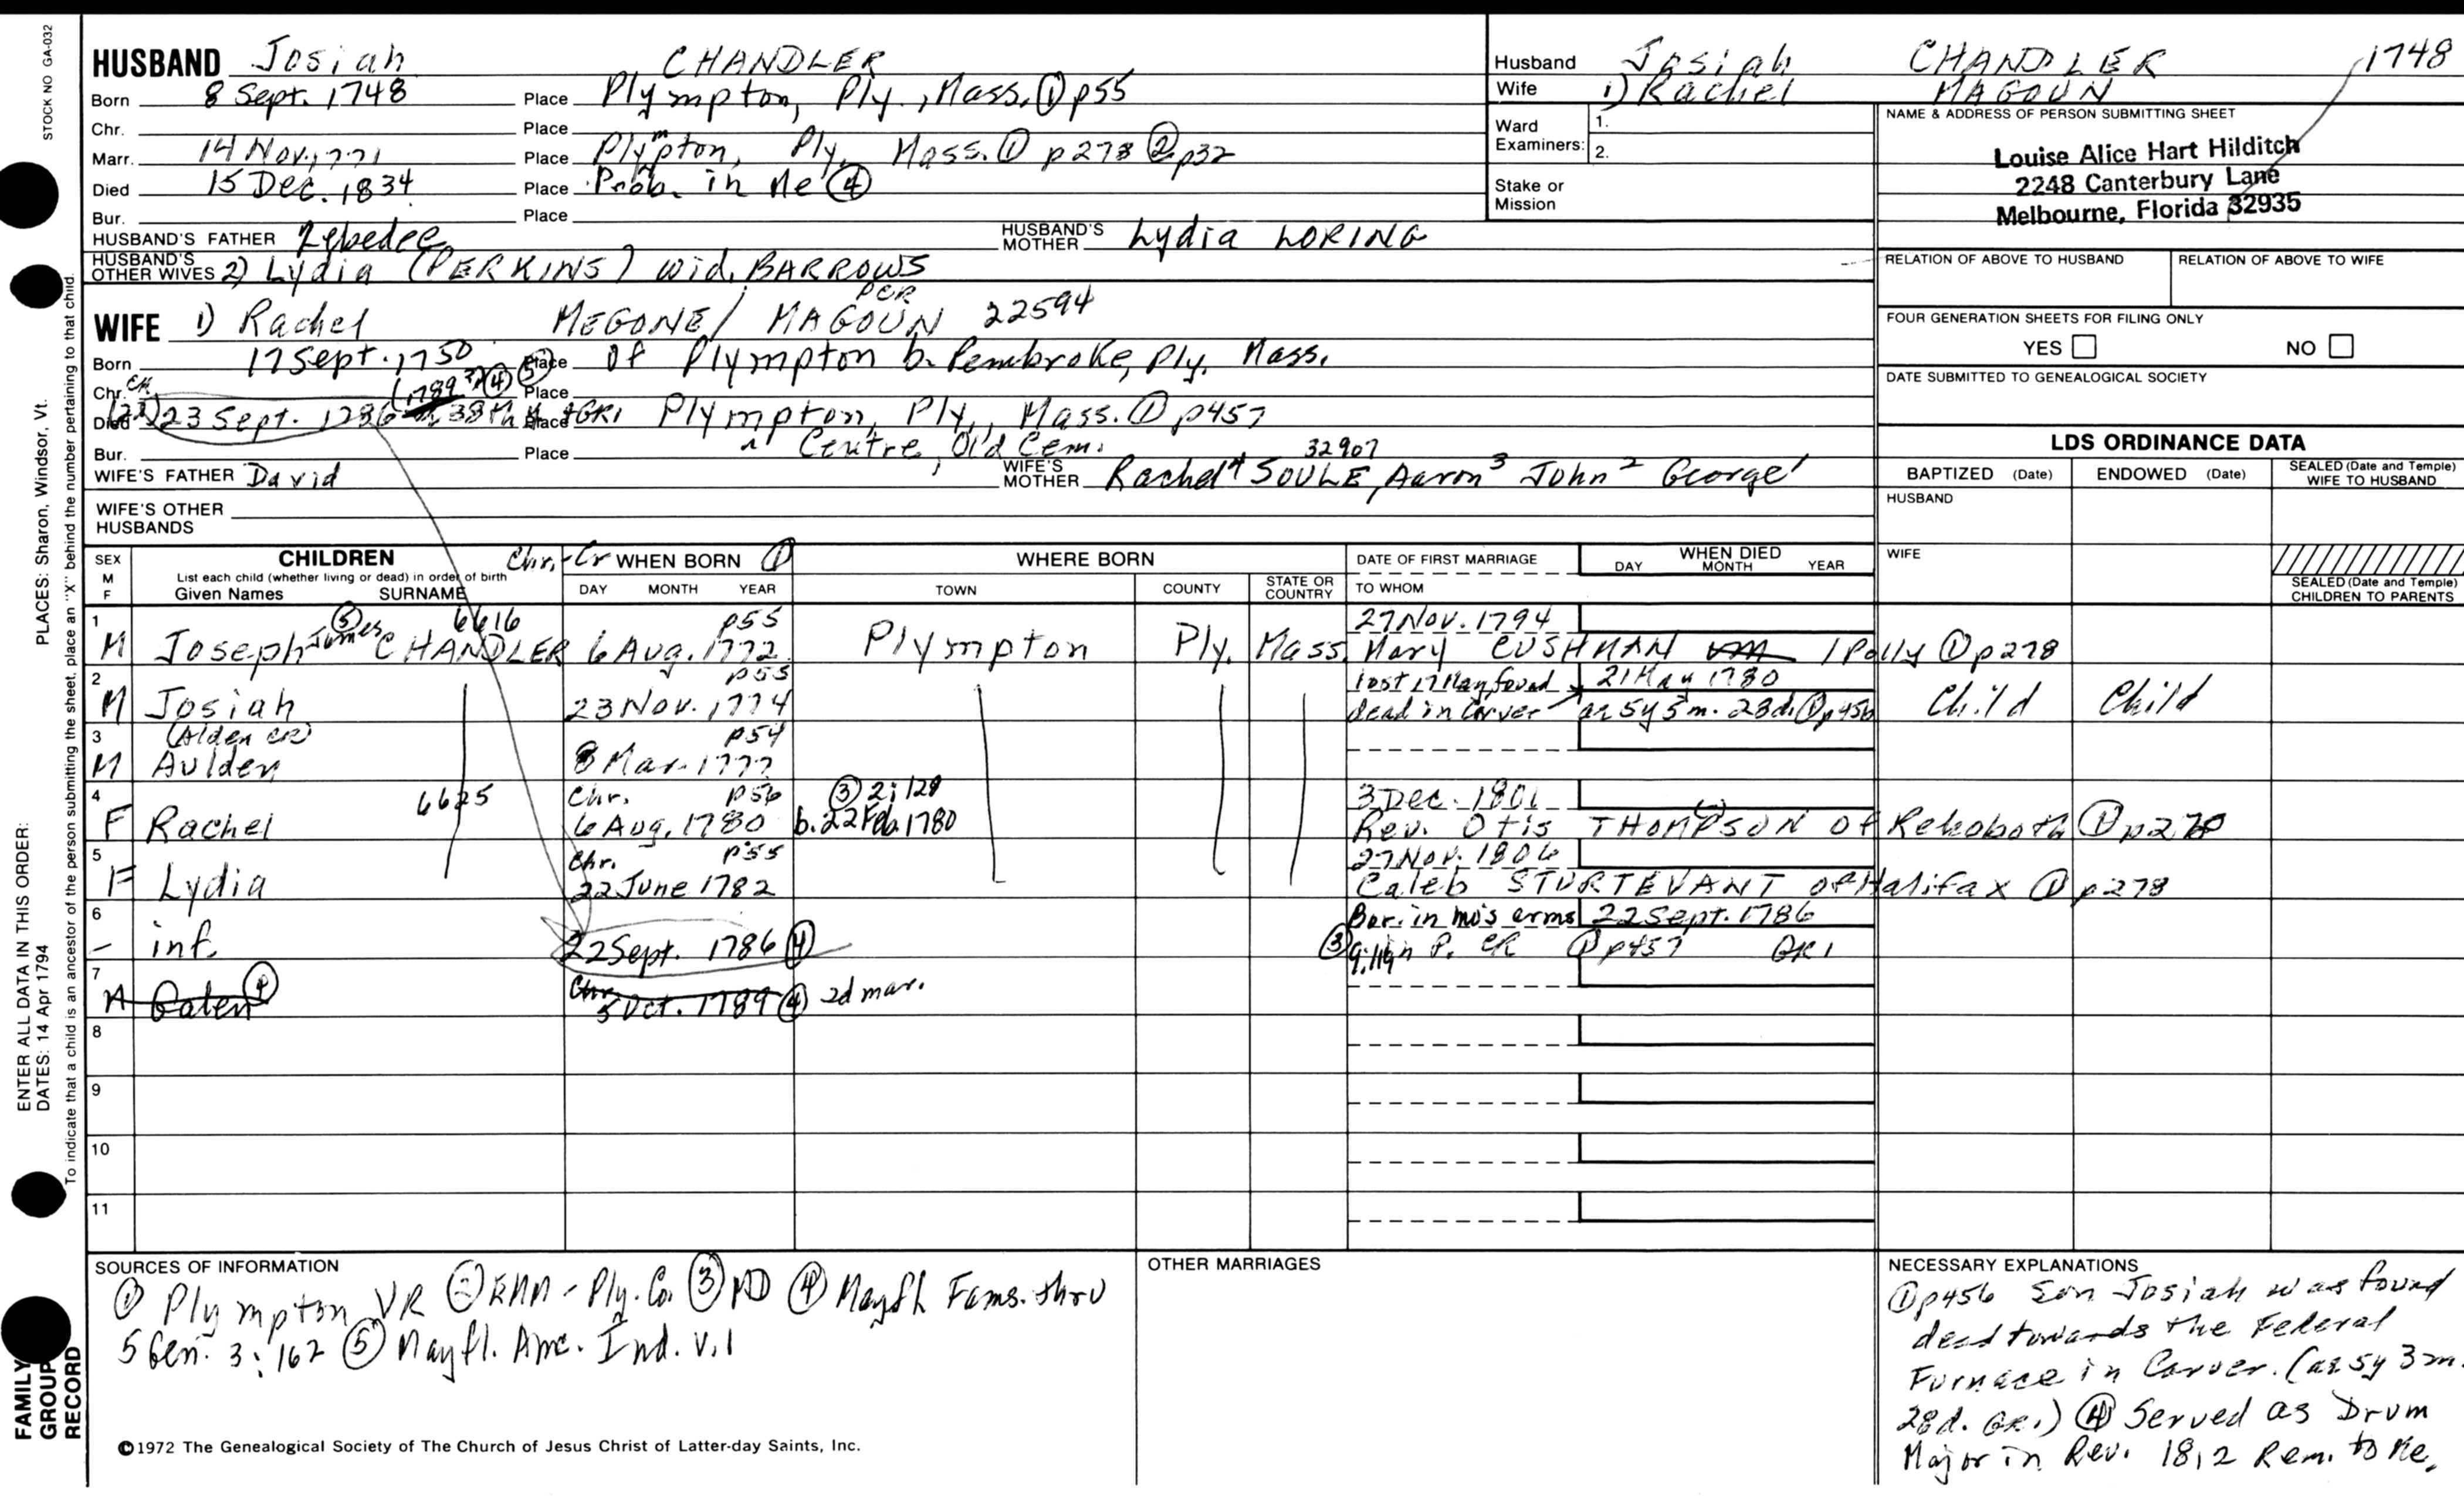 STOCK NO GA-032
PLACES: Sharon, Windsor, Vt.
To indicate that a child is an ancestor of the person submitting the sheet, place an "X" behind the number pertaining to that child.
ENTER ALL DATA IN THIS ORDER:
DATES: 14 Apr 1794
FAMILY GROUP RECORD
HUSBAND Josiah CHANDLER
Born 8 Sept. 1748 Place Plympton, Ply., Mass. ① p55
Chr. Place
Marr. 14 Nov. 1771 Place Plympton, Ply. Mass. ① p278 ② p32
Died 15 Dec. 1834 Place Prob. in Me ④
Bur. Place
HUSBAND'S FATHER Zebedee HUSBAND'S MOTHER Lydia LORING
HUSBAND'S OTHER WIVES 2) Lydia (PERKINS) wid. BARROWS
Husband Josiah CHANDLER 1748
Wife 1) Rachel MAGOUN
Ward Examiners: 1.
2.
Stake or Mission
NAME & ADDRESS OF PERSON SUBMITTING SHEET
Louise Alice Hart Hilditch
2248 Canterbury Lane
Melbourne, Florida 32935
RELATION OF ABOVE TO HUSBAND RELATION OF ABOVE TO WIFE
FOUR GENERATION SHEETS FOR FILING ONLY
YES NO
DATE SUBMITTED TO GENEALOGICAL SOCIETY
PCR
WIFE 1) Rachel MEGONE / MAGOUN 22594
Born 17 Sept. 1750 Place of Plympton b. Pembroke, Ply. Mass.
Chr. (1789 ④ Place
Died (22) 23 Sept. 1786 38th Place GR1 Plympton, Ply., Mass. ① p457
Bur. Place Centre, Old Cem.
32907
WIFE'S FATHER David WIFE'S MOTHER Rachel⁴ SOULE, Aaron³ John² George¹
WIFE'S OTHER HUSBANDS
LDS ORDINANCE DATA
BAPTIZED (Date) ENDOWED (Date) SEALED (Date and Temple) WIFE TO HUSBAND
HUSBAND
WIFE
SEALED (Date and Temple) CHILDREN TO PARENTS
SEX M F CHILDREN Chr.-Cr WHEN BORN ① WHERE BORN DATE OF FIRST MARRIAGE WHEN DIED
List each child (whether living or dead) in order of birth
Given Names SURNAME DAY MONTH YEAR TOWN COUNTY STATE OR COUNTRY TO WHOM DAY MONTH YEAR
1 ⑤ 6616 p55 27 Nov. 1794
M Joseph James CHANDLER 6 Aug. 1772 Plympton Ply. Mass. Mary CUSHMAN / Polly ① p278
2 p55 lost 17 May, found 21 May 1780
M Josiah 23 Nov. 1774 dead in Carver ae 5y 5m. 28d. ① p456 Child Child
3 (Alden CR) p54
M Aulden 8 Mar. 1777
4 6625 Chr. p56 ③ 2:128 3 Dec. 1801
F Rachel 6 Aug. 1780 b. 22 Feb. 1780 Rev. Otis THOMPSON of Rehoboth ① p278
5 Chr. p55 27 Nov. 1806
F Lydia 22 June 1782 Caleb STURTEVANT of Halifax ① p278
6 Bur. in mo's arms 22 Sept. 1786
- inf. 22 Sept. 1786 ④ ③ CR ① p457 GR1
7 Chr.
M Galen ④ 5 Oct. 1789 ④ 2d mar.
8
9
10
11
SOURCES OF INFORMATION
① Plympton VR ② - Ply. Co. ③ MD ④ Mayfl Fams. thru
5 Gen. 3:162 ⑤ Mayfl. Anc. Ind. v.1
OTHER MARRIAGES
NECESSARY EXPLANATIONS
① p456 Son Josiah was found
dead towards the Federal
Furnace in Carver. (ae 5y 3m.
28d. GR1) ④ Served as Drum
Major in Rev. 1812 Rem. to Me.
©1972 The Genealogical Society of The Church of Jesus Christ of Latter-day Saints, Inc.